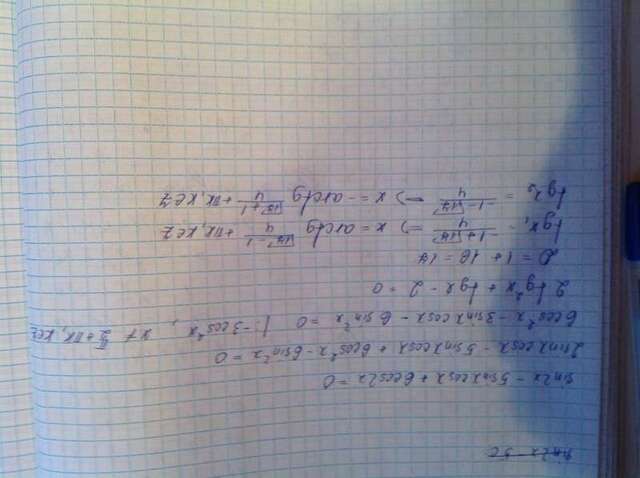 sin2x - 5c
sin2x - 5sinxcosx + 6cos2x = 0
2sinxcosx - 5sinxcosx + 6cos²x - 6sin²x = 0
6cos²x - 3sinxcosx - 6sin²x = 0 | : -3cos²x, x ≠ π/2 + πk, k∈Z
2tg²x + tgx - 2 = 0
D = 1 + 16 = 17
tgx₁ = (-1+√17)/4 => x = arctg (√17-1)/4 + πk, k∈Z
tgx₂ = (-1-√17)/4 => x = -arctg (√17+1)/4 + πk, k∈Z